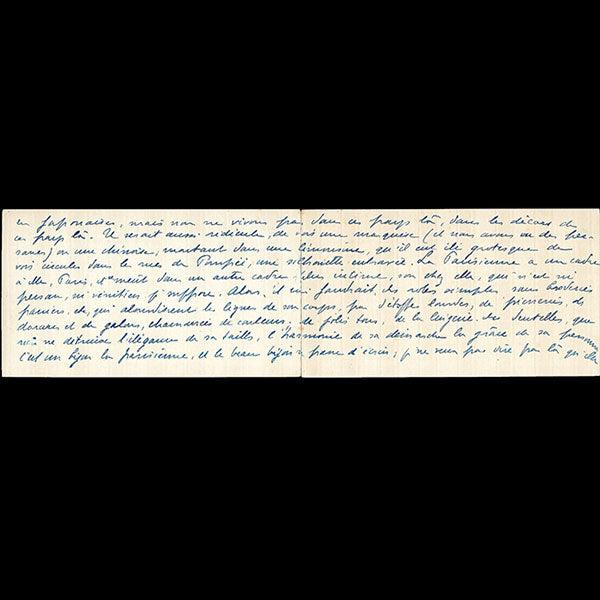 en Japonaises, mais non ne vivons pas dans ces pays là, dans les décors de
ces pays là. Il serait aussi ridicule, de voir une marquise (et nous avons vu des per-
sanes) ou une chinoise, montant dans une limousine, qu'il eut été grotesque de
voir circuler dans les rues de Pompéi, une silhouette entravée. La Parisienne a un cadre
à elle, Paris, et meut dans un autre cadre plus intime, son chez elle, qui n'est ni
persan, ni vénitien je suppose. Alors, il lui faudrait, des robes simples sans broderies
paniers, etc, qui alourdissent les lignes de son corps, pas d'étoffes lourdes, de pierreries, de
dorures et de galons, chamarrées de couleurs. de jolis tons, de la lingerie, des dentelles, que
rien ne détruise l'élégance de sa taille, l'harmonie de sa démarche la grâce de sa personne
C'est un bijou la parisienne, et le beau bijou se passe d'écrin; je ne veux pas dire par là qu'elle